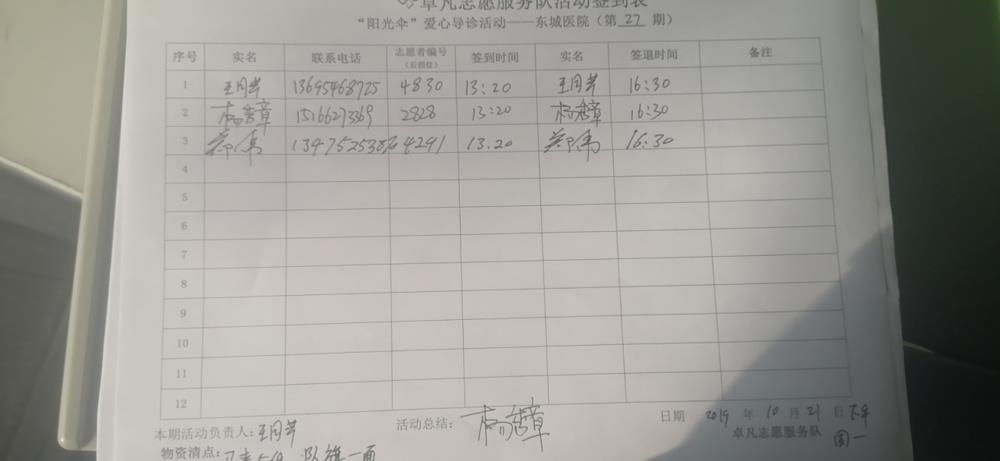 卓凡志愿服务队活动签到表
“阳光伞”爱心导诊活动——东城医院（第 27 期）
序号 实名 联系电话 志愿者编号（后四位） 签到时间 实名 签退时间 备注
1 13695468725 4830 13:20 16:30
2 15166273369 2828 13:20 16:30
3 4291 13.20 16:30
4
5
6
7
8
9
10
11
12
本期活动负责人: 活动总结： 日期 2019 年 10 月 21 日 下午
卓凡志愿服务队 周一
物资清点: 队旗一面